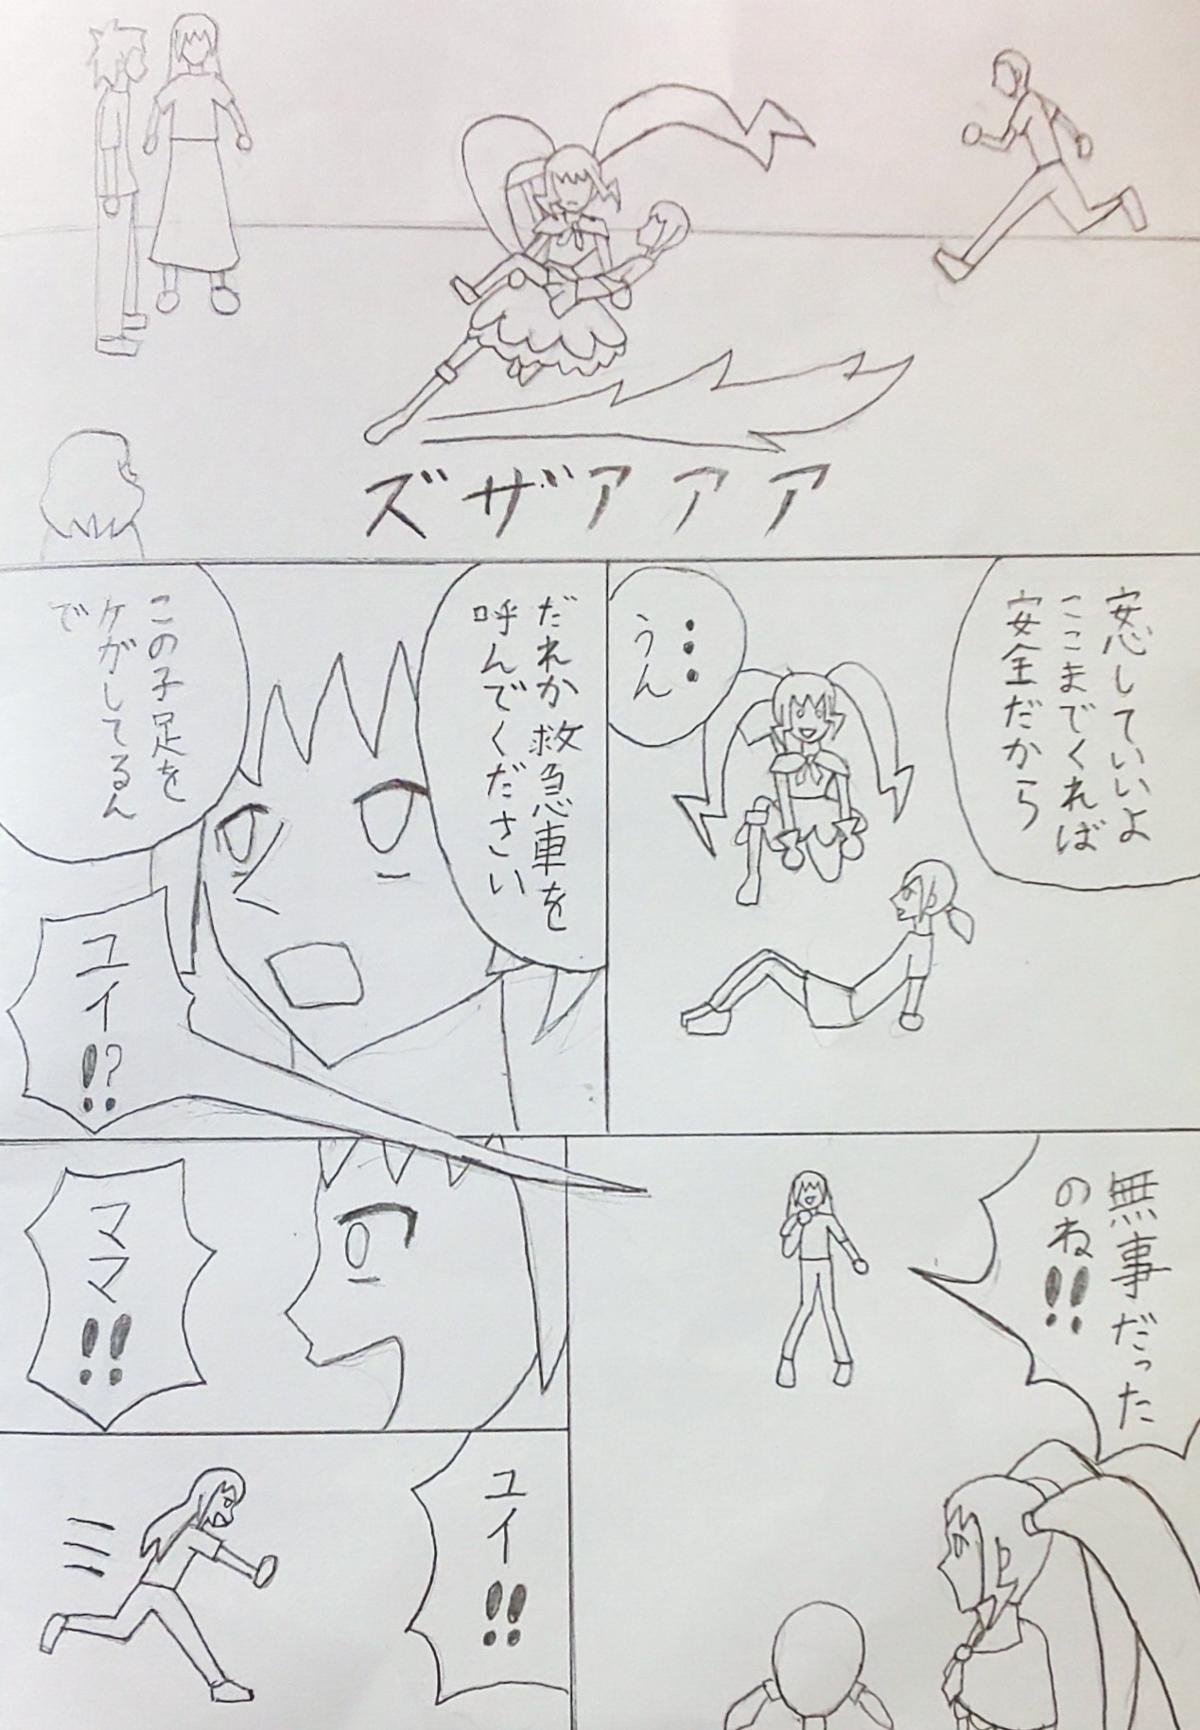 ズザアアア
安心していいよ
ここまでくれば
安全だから
・・・
うん
だれか救急車を
呼んでください
この子足を
ケガしてるん
で
ユイ!?
無事だった
のね!!
ママ!!
ユイ!!